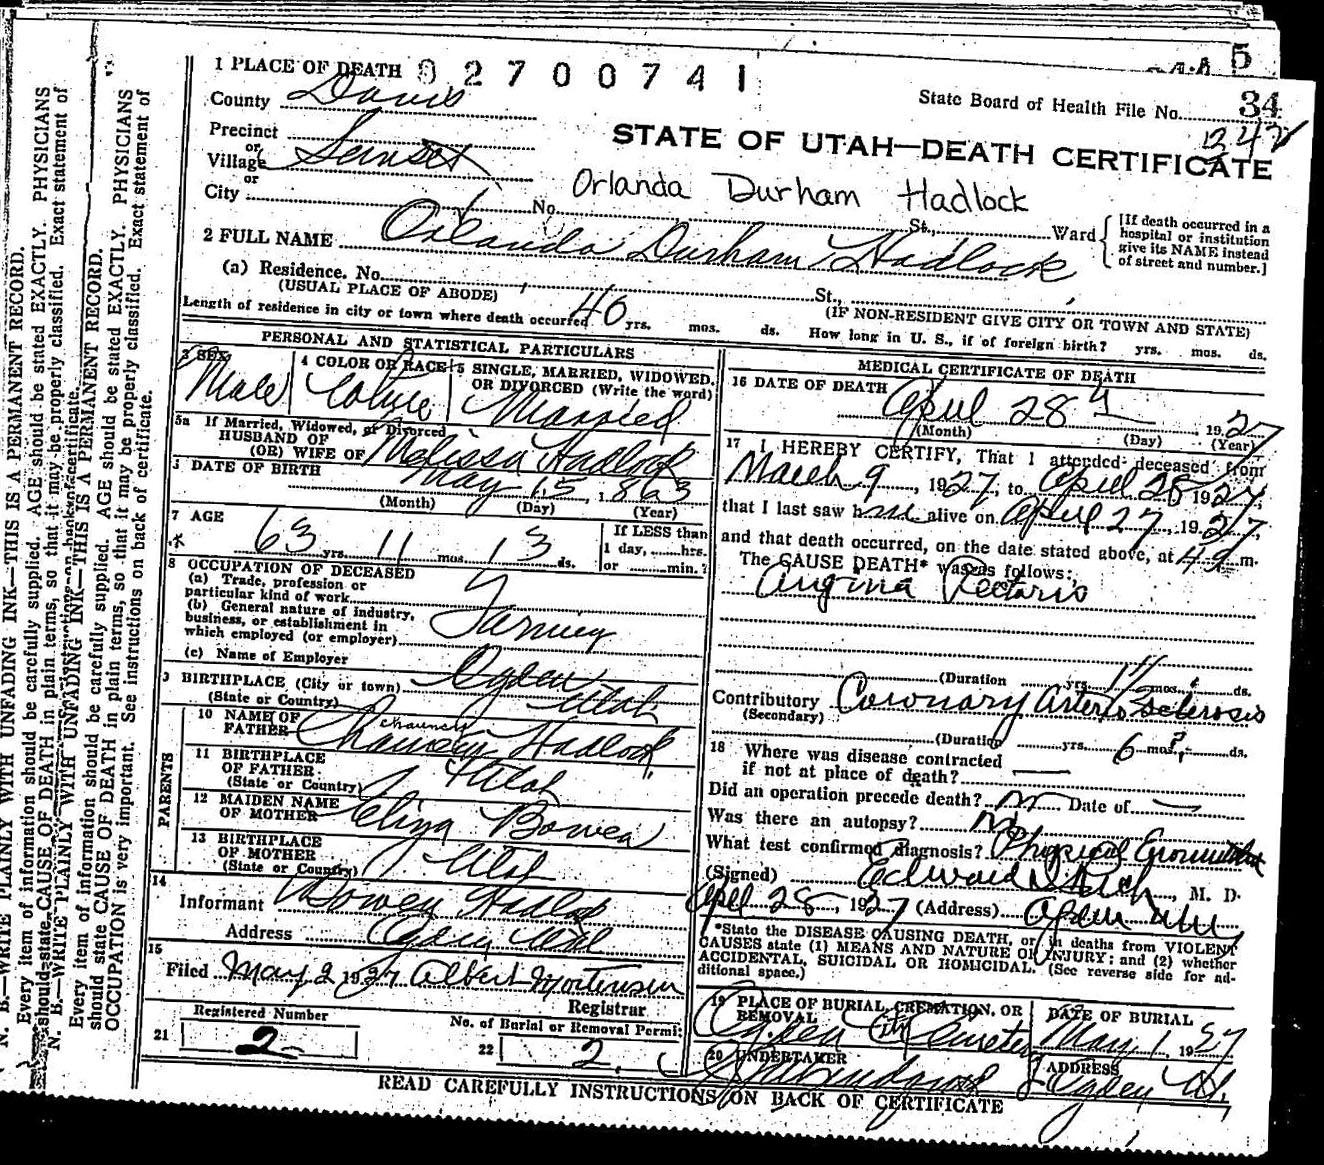 5
1 PLACE OF DEATH 02700741
State Board of Health File No. 34
242
County Davis
STATE OF UTAH—DEATH CERTIFICATE
Precinct
or
Village Sunset
or
City
Orlanda Durham Hadlock
No. St., Ward
[If death occurred in a
hospital or institution
give its NAME instead
of street and number.]
2 FULL NAME Orlanda Durham Hadlock
(a) Residence. No. St.,
(USUAL PLACE OF ABODE)
(IF NON-RESIDENT GIVE CITY OR TOWN AND STATE)
Length of residence in city or town where death occurred 46 yrs. mos. ds. How long in U. S., if of foreign birth? yrs. mos. ds.
PERSONAL AND STATISTICAL PARTICULARS
3 SEX
Male
4 COLOR OR RACE
White
5 SINGLE, MARRIED, WIDOWED,
OR DIVORCED (Write the word)
Married
5a If Married, Widowed, or Divorced
HUSBAND OF
(OR) WIFE OF Melissa Hadlock
DATE OF BIRTH
May 15, 1863
(Month) (Day) (Year)
7 AGE
63 yrs. 11 mos. 13 ds.
If LESS than
1 day, hrs.
or min.?
8 OCCUPATION OF DECEASED
(a) Trade, profession or
particular kind of work
(b) General nature of industry,
business, or establishment in
which employed (or employer)
Farming
(c) Name of Employer
9 BIRTHPLACE (City or town) Ogden
(State or Country) Utah
PARENTS
10 NAME OF
FATHER Chauncey Hadlock
Chauncey
11 BIRTHPLACE
OF FATHER
(State or Country) Utah
12 MAIDEN NAME
OF MOTHER Eliza Bowen
13 BIRTHPLACE
OF MOTHER
(State or Country) Utah
14
Informant Bowen Hadlock
Address Ogden Utah
15
Filed May 2 1927 Albert Mortensen
Registrar
Registered Number
21 2
No. of Burial or Removal Permit
22 2
MEDICAL CERTIFICATE OF DEATH
16 DATE OF DEATH
April 28 1927
(Month) (Day) (Year)
17 I HEREBY CERTIFY, That I attended deceased from
March 9, 1927, to April 28 1927,
that I last saw him alive on April 27, 1927,
and that death occurred, on the date stated above, at 4 m.
The CAUSE DEATH* was as follows:
Angina Pectoris
(Duration yrs. mos. ds.
Contributory Coronary Arterio Sclerosis
(Secondary)
(Duration yrs. 6 mos.? ds.
18 Where was disease contracted
if not at place of death?
Did an operation precede death? no Date of
Was there an autopsy? no
What test confirmed diagnosis? Physical
(Signed) Edward , M. D.
April 28, 1927 (Address) Ogden Utah
*State the DISEASE CAUSING DEATH, or in deaths from VIOLENT
CAUSES state (1) MEANS AND NATURE OF INJURY: and (2) whether
ACCIDENTAL, SUICIDAL OR HOMICIDAL. (See reverse side for ad-
ditional space.)
19 PLACE OF BURIAL, CREMATION, OR
REMOVAL
Ogden City Cemetery
DATE OF BURIAL
May 1 1927
20 UNDERTAKER
ADDRESS
Ogden Ut.
READ CAREFULLY INSTRUCTIONS ON BACK OF CERTIFICATE
N. B.—WRITE PLAINLY WITH UNFADING INK—THIS IS A PERMANENT RECORD.
Every item of information should be carefully supplied. AGE should be stated EXACTLY. PHYSICIANS
should state CAUSE OF DEATH in plain terms, so that it may be properly classified. Exact statement of
N. B.—WRITE PLAINLY WITH UNFADING INK—THIS IS A PERMANENT RECORD.
Every item of information should be carefully supplied. AGE should be stated EXACTLY. PHYSICIANS
should state CAUSE OF DEATH in plain terms, so that it may be properly classified. Exact statement of
OCCUPATION is very important. See instructions on back of certificate.